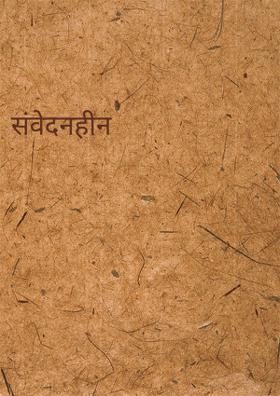 संवेदनहीन